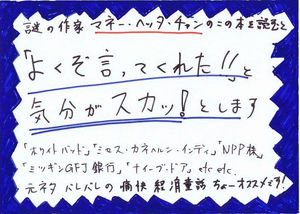 謎の作家マネー・ヘッタ・チャンのこの本を読むと
「よくぞ言ってくれた!!」と
気分がスカッ!とします
「ホワイトバッド」「ミセス・カネヘルン・インディ」「NPP株」
「ミツギンGFJ銀行」「ナイーブ・ドア」etc etc.
元ネタバレバレの痛快経済童話ちょーオススメです!